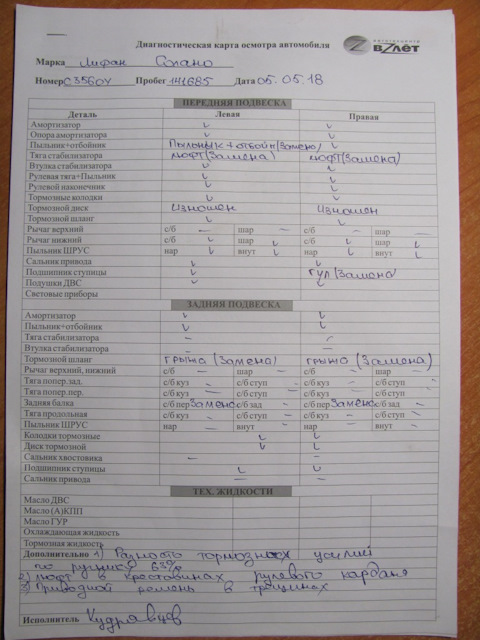 Диагностическая карта осмотра автомобиля
АВТОТЕХЦЕНТР
Vzлёт
Марка Лифан Солано
Номер С356ОУ Пробег 141685 Дата 05.05.18
ПЕРЕДНЯЯ ПОДВЕСКА
Деталь Левая Правая
Амортизатор
Опора амортизатора
Пыльник+отбойник Пыльнык + отбойн (Замена)
Тяга стабилизатора люфт (Замена) люфт (Замена)
Втулка стабилизатора
Рулевая тяга+Пыльник
Рулевой наконечник
Тормозные колодки
Тормозной диск Изношен Изношен
Тормозной шланг
Рычаг верхний с/б – шар – с/б – шар –
Рычаг нижний с/б шар с/б шар
Пыльник ШРУС нар внут нар внут
Сальник привода
Подшипник ступицы гул (Замена)
Подушки ДВС
Световые приборы
ЗАДНЯЯ ПОДВЕСКА
Амортизатор
Пыльник+отбойник
Тяга стабилизатора –
Втулка стабилизатора – –
Тормозной шланг грыжа (Замена) грыжа (Замена)
Рычаг верхний, нижний с/б – шар – с/б – шар –
Тяга попер.зад. с/б куз – с/б ступ – с/б куз – с/б ступ –
Тяга попер.пер. с/б куз – с/б ступ – с/б куз – с/б ступ –
Задняя балка с/б пер Замена с/б зад – с/б пер Замена с/б зад –
Тяга продольная с/б куз – с/б ступ – с/б куз – с/б ступ –
Пыльник ШРУС нар – внут – нар – внут –
Колодки тормозные
Диск тормозной
Сальник хвостовика – –
Подшипник ступицы
Сальник привода – –
ТЕХ. ЖИДКОСТИ
Масло ДВС
Масло (А)КПП
Масло ГУР
Охлаждающая жидкость
Тормозная жидкость
Дополнительно 1) Разность тормозных усилий
по ручнику 63%
2) люфт в крестовинах рулевого кардана
3) Приводной ремень в трещинах
Исполнитель Кудрявцев